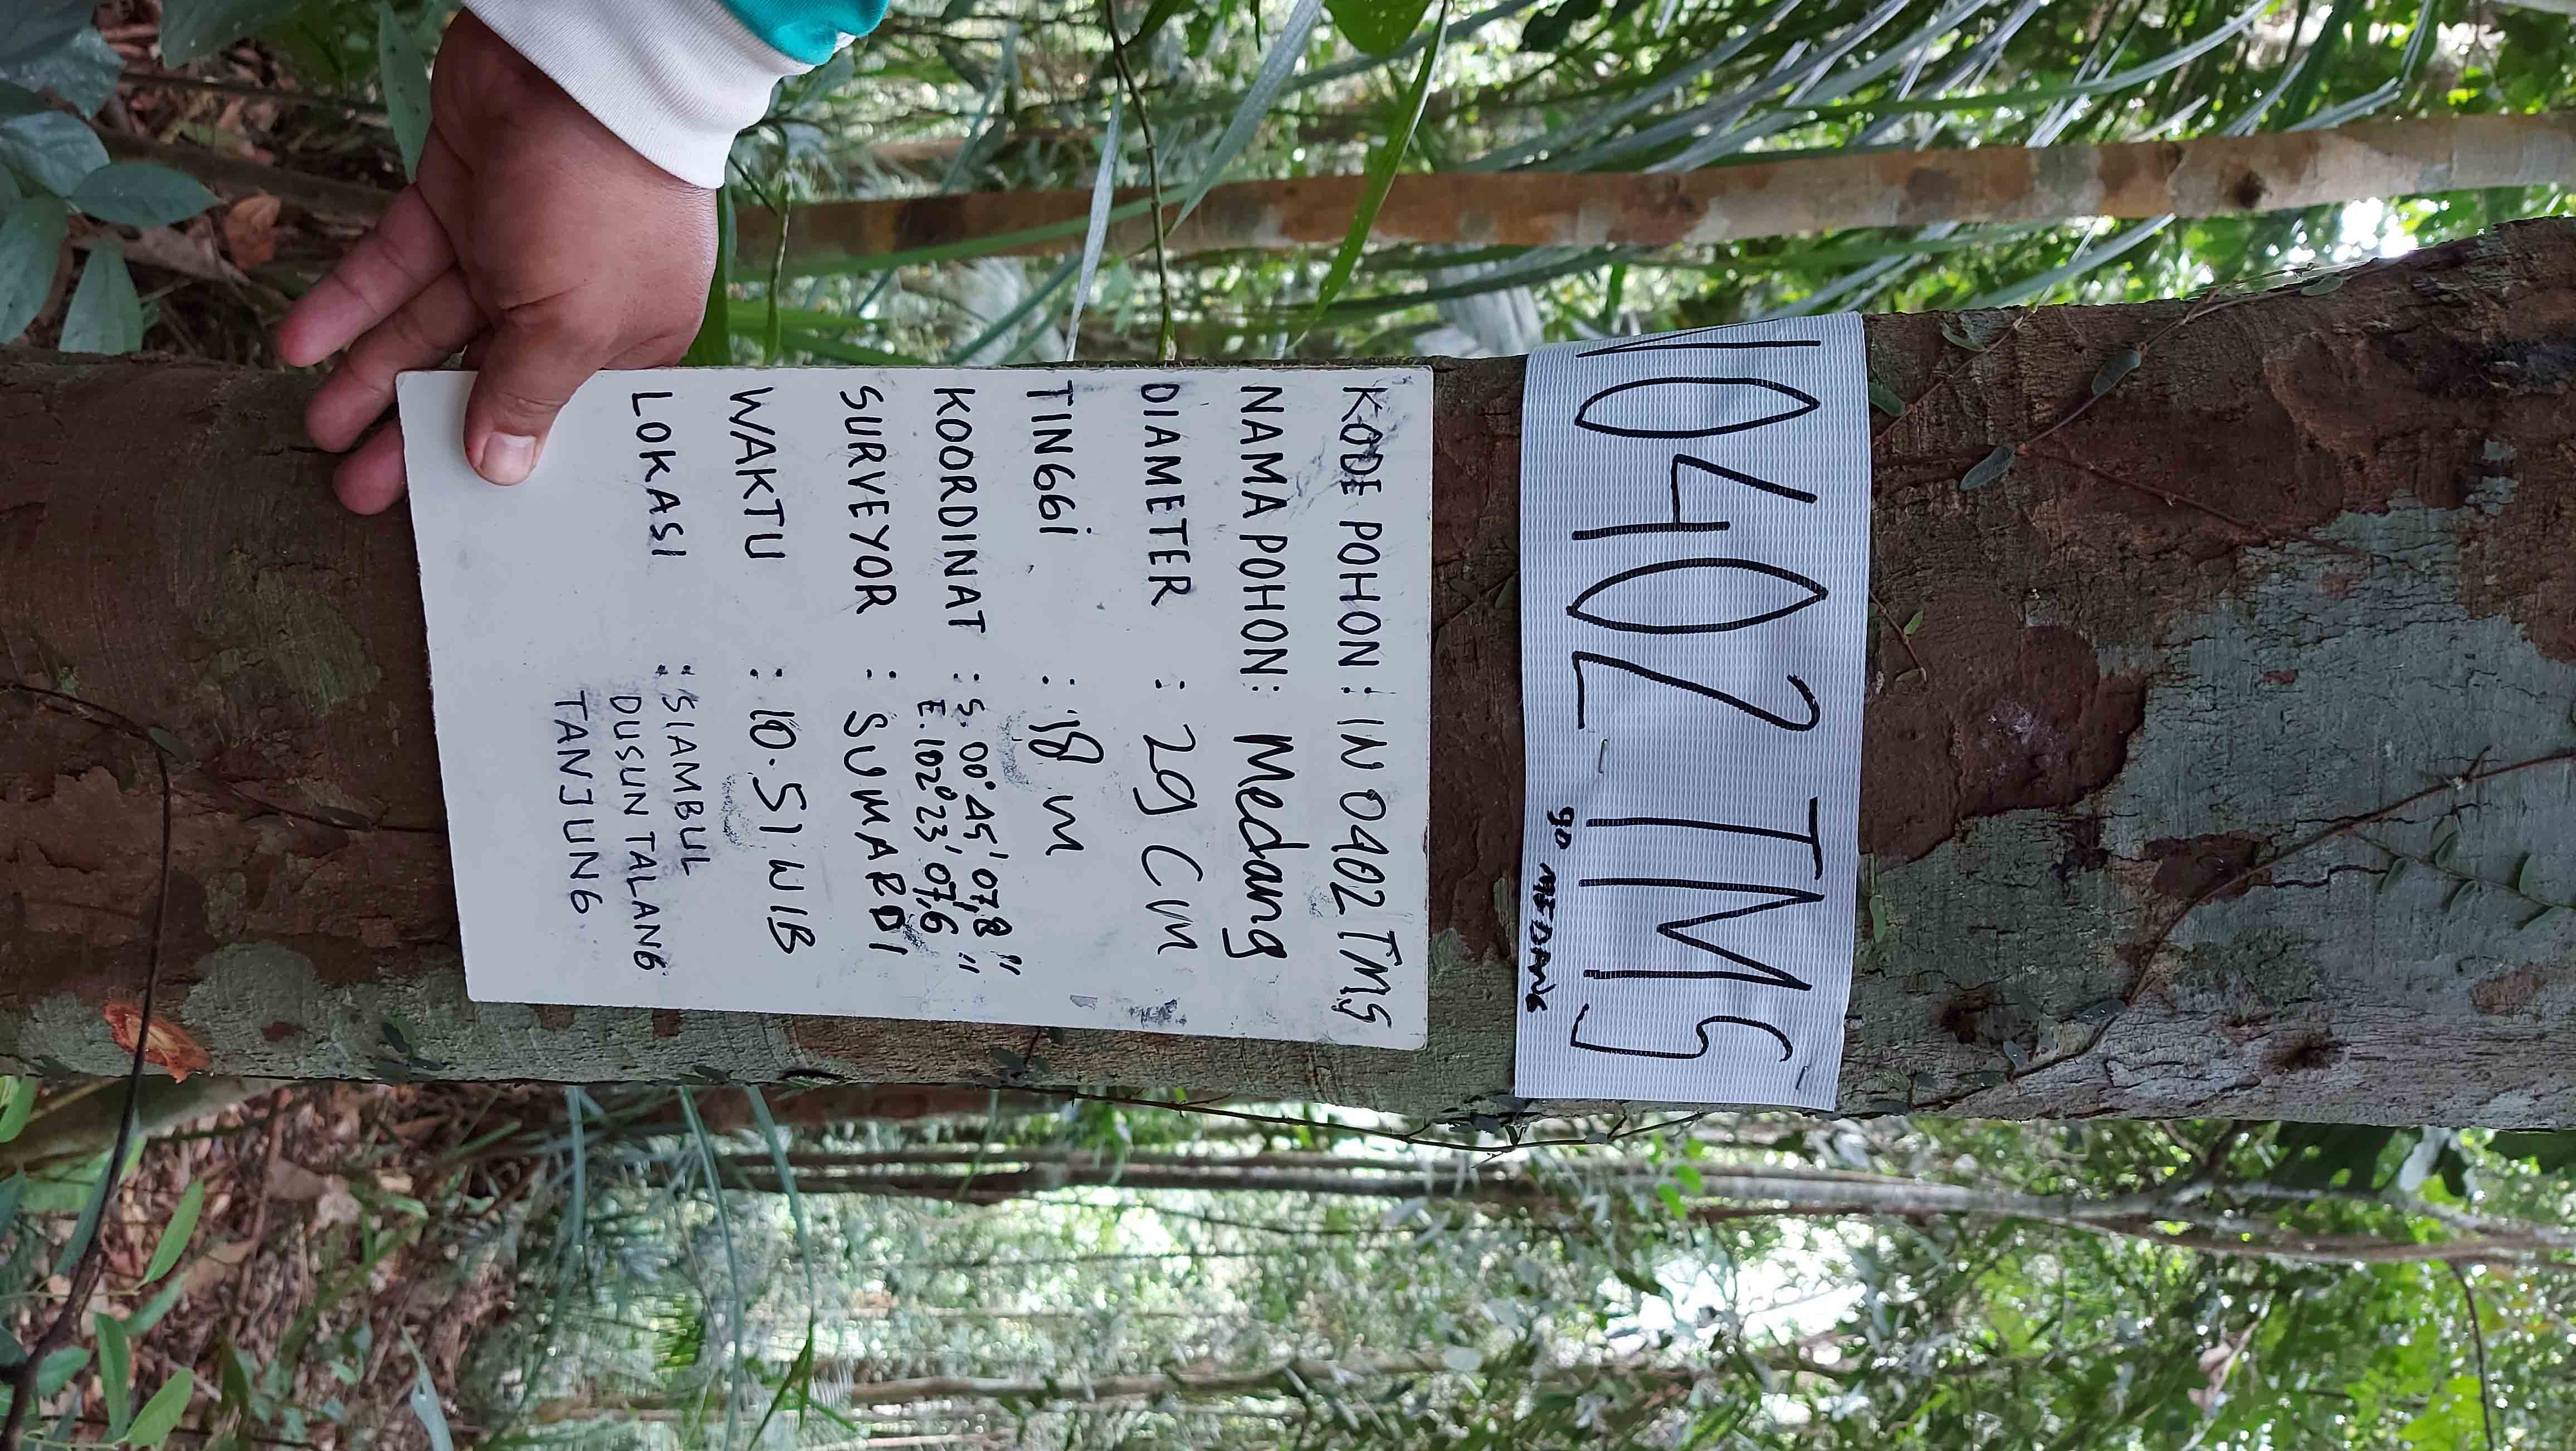 N0402 TMS
90 MEDANG
KODE POHON : IN 0402 TMS
NAMA POHON : Medang
DIAMETER : 29 CM
TINGGI : 18 m
KOORDINAT : S. 00° 45' 07,8"
E. 102° 23' 07,6"
SURVEYOR : SUMARDI
WAKTU : 10.51 WIB
LOKASI : SIAMBUL
DUSUN TALANG
TANJUNG